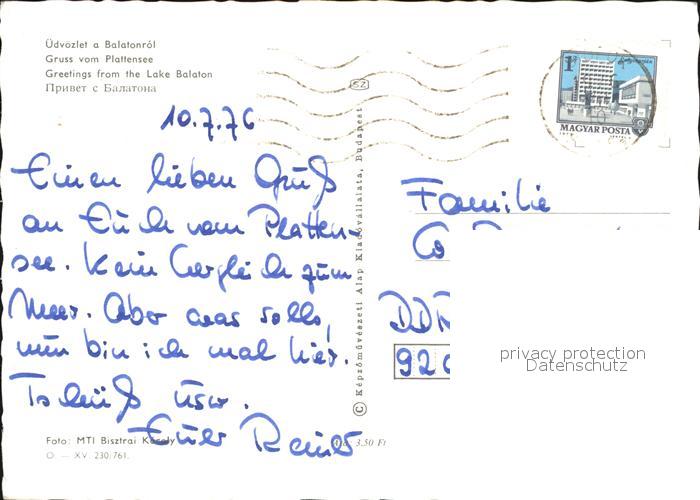 Üdvözlet a Balatonról
Gruss vom Plattensee
Greetings from the Lake Balaton
Привет с Балатона
10.7.76
Einen lieben Gruß
an Euch vom Platten-
see. Kein Vergleich zum
Meer. Aber was solls,
nun bin ich mal hier.
Tschüß usw.
Euer Rainer
Foto: MTI Bisztrai Károly
O. — XV. 230/761.
3.50 Ft
© Képzőművészeti Alap Kiadóvállalata, Budapest
SZ
1Ft
MAGYAR POSTA
Familie
DDR
920
privacy protection
Datenschutz